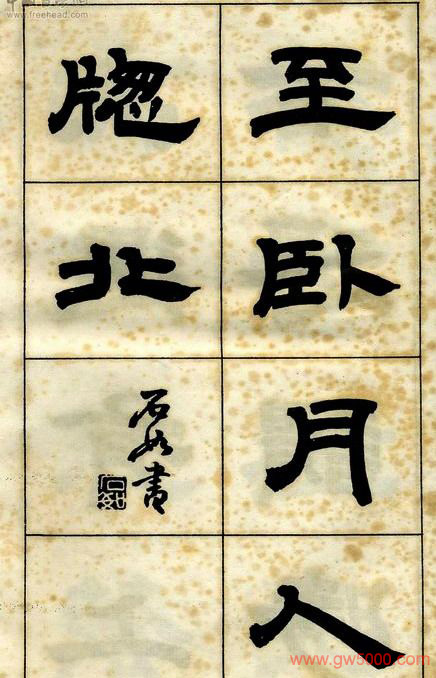 www.freehead.com
至卧月人
牕北
石如書
www.gw5000.com